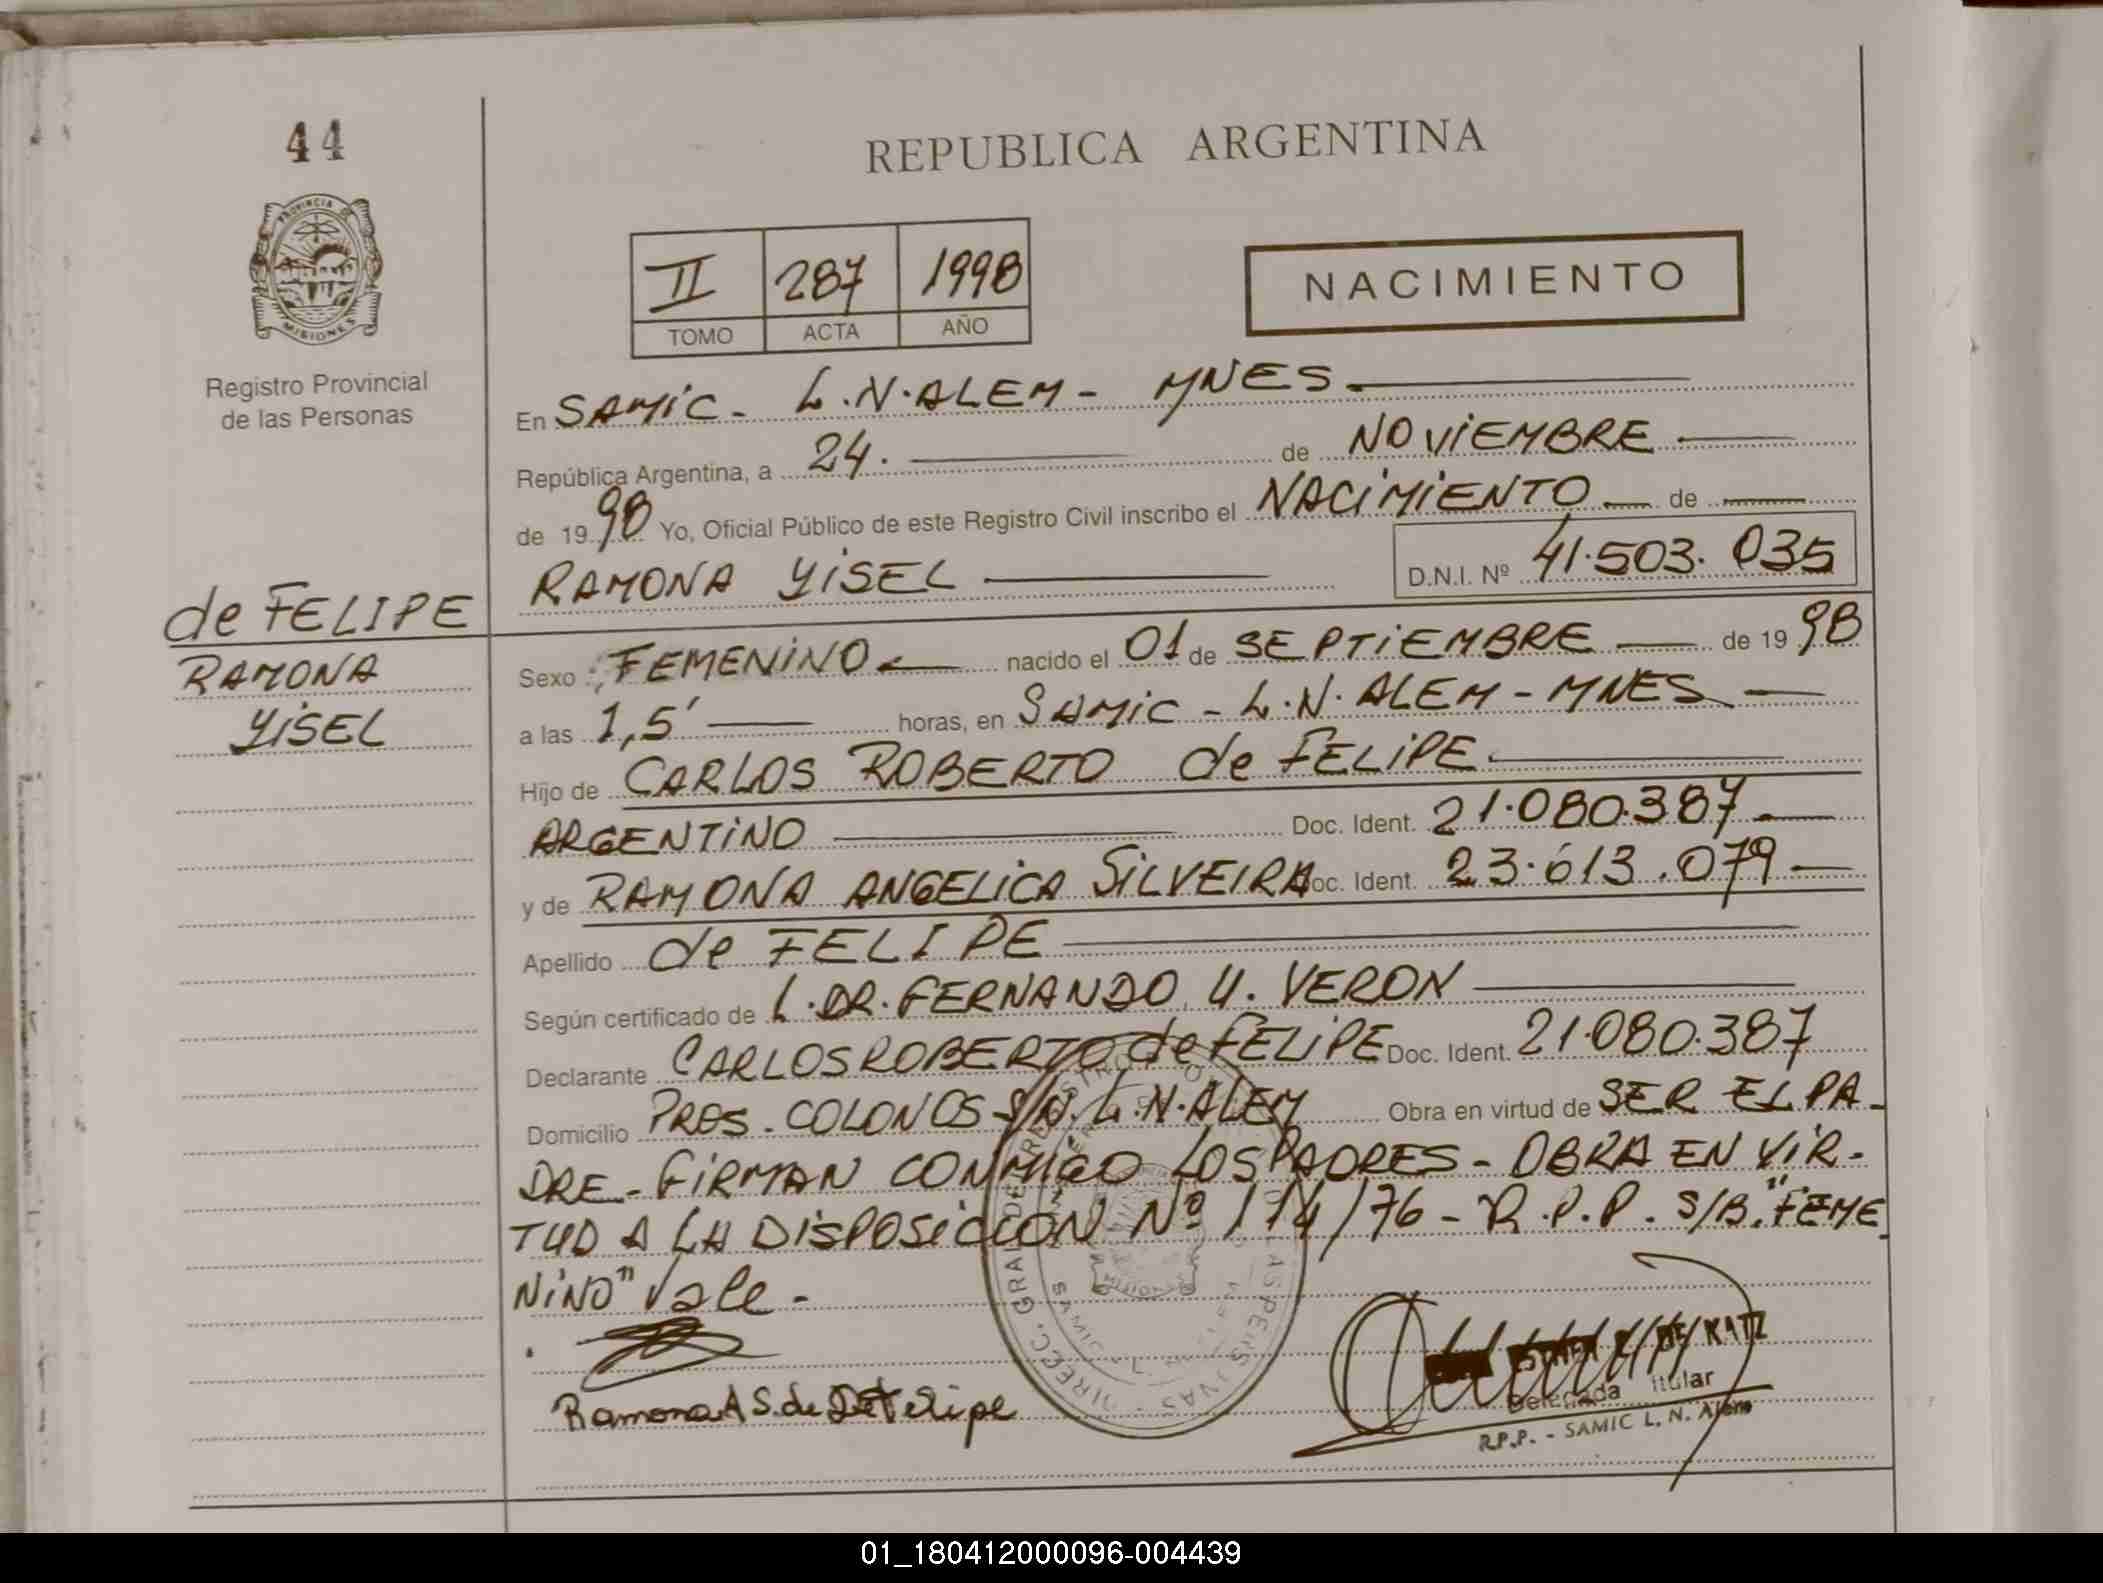 44
PROVINCIA DE
MISIONES
Registro Provincial
de las Personas
de FELIPE
RAMONA
YISEL
REPUBLICA ARGENTINA
II 287 1998
TOMO ACTA AÑO
NACIMIENTO
En SAMIC - L.N.ALEM - MNES.
República Argentina, a 24. de NOVIEMBRE
de 1998 Yo, Oficial Público de este Registro Civil inscribo el NACIMIENTO de
RAMONA YISEL D.N.I. Nº 41.503.035
Sexo FEMENINO nacido el 01 de SEPTIEMBRE de 1998
a las 1,5' horas, en SAMIC - L.N. ALEM - MNES
Hijo de CARLOS ROBERTO de FELIPE
ARGENTINO Doc. Ident. 21.080.387
y de RAMONA ANGELICA SILVEIRA Doc. Ident. 23.613.079
Apellido de FELIPE
Según certificado de L. DR. FERNANDO U. VERON
Declarante CARLOS ROBERTO de FELIPE Doc. Ident. 21.080.387
Domicilio PROS. COLONOS S/N. L.N.ALEM Obra en virtud de SER EL PA-
DRE - FIRMAN CONMIGO LOS PADRES - OBRA EN VIR-
TUD A LA DISPOSICION Nº 114/76 - R.P.P. S/B. "FEME
NINO" Vale -
Ramona A S. de De Felipe
DE KATZ
Delegada Titular
R.P.P. - SAMIC L. N. Alem
01_180412000096-004439